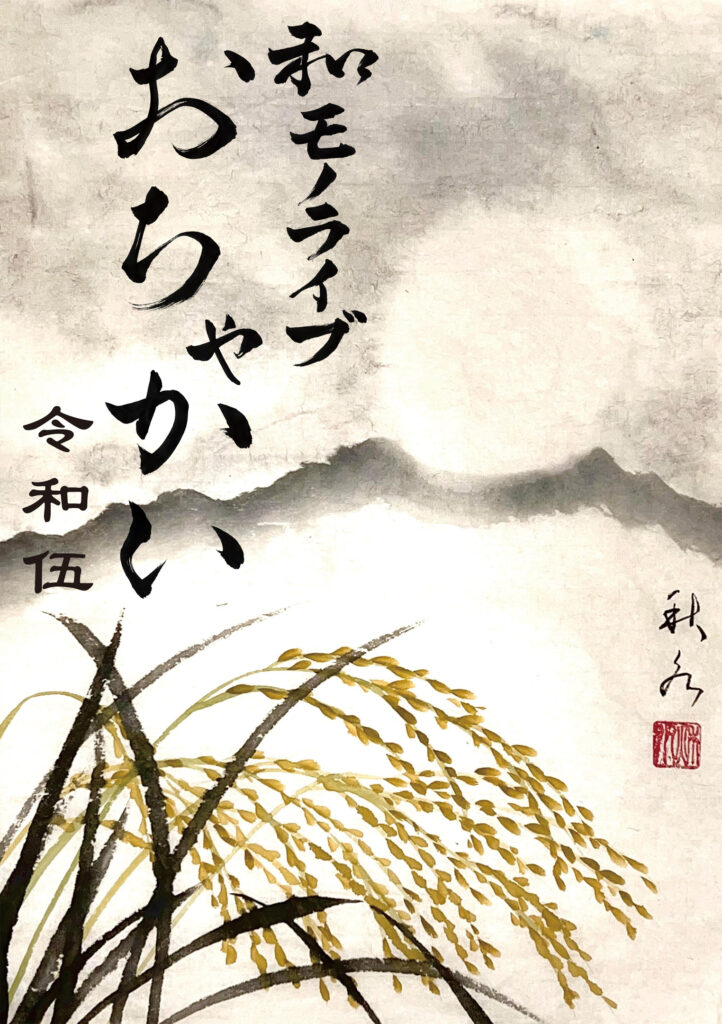 和モノライブ
おちゃかい
令和伍